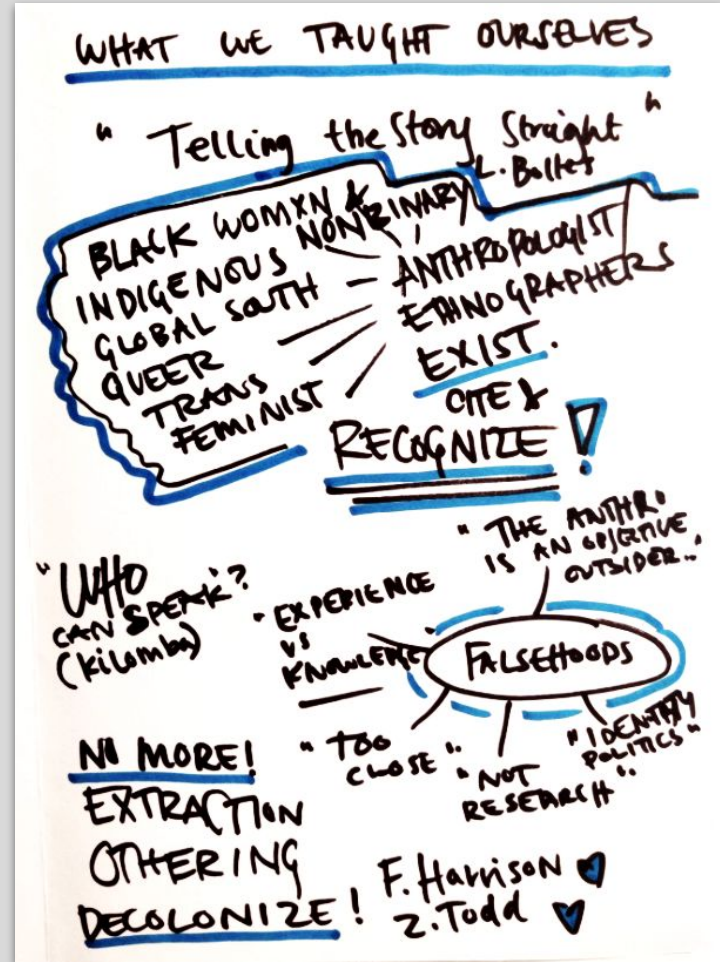 WHAT WE TAUGHT OURSELVES
"Telling the Story Straight"
L. Bolles
BLACK WOMXN &
NONBINARY
INDIGENOUS
GLOBAL SOUTH
QUEER
TRANS
FEMINIST
ANTHROPOLOGIST
ETHNOGRAPHERS
EXIST.
CITE &
RECOGNIZE!
"WHO
CAN SPEAK"?
(Kilomba)
"THE ANTHRO
IS AN OBJECTIVE
OUTSIDER."
"EXPERIENCE
VS
KNOWLEDGE
FALSEHOODS
"TOO
CLOSE".
"NOT
RESEARCH".
"IDENTITY
POLITICS"
NO MORE!
EXTRACTION
OTHERING
DECOLONIZE!
F. Harrison
Z. Todd